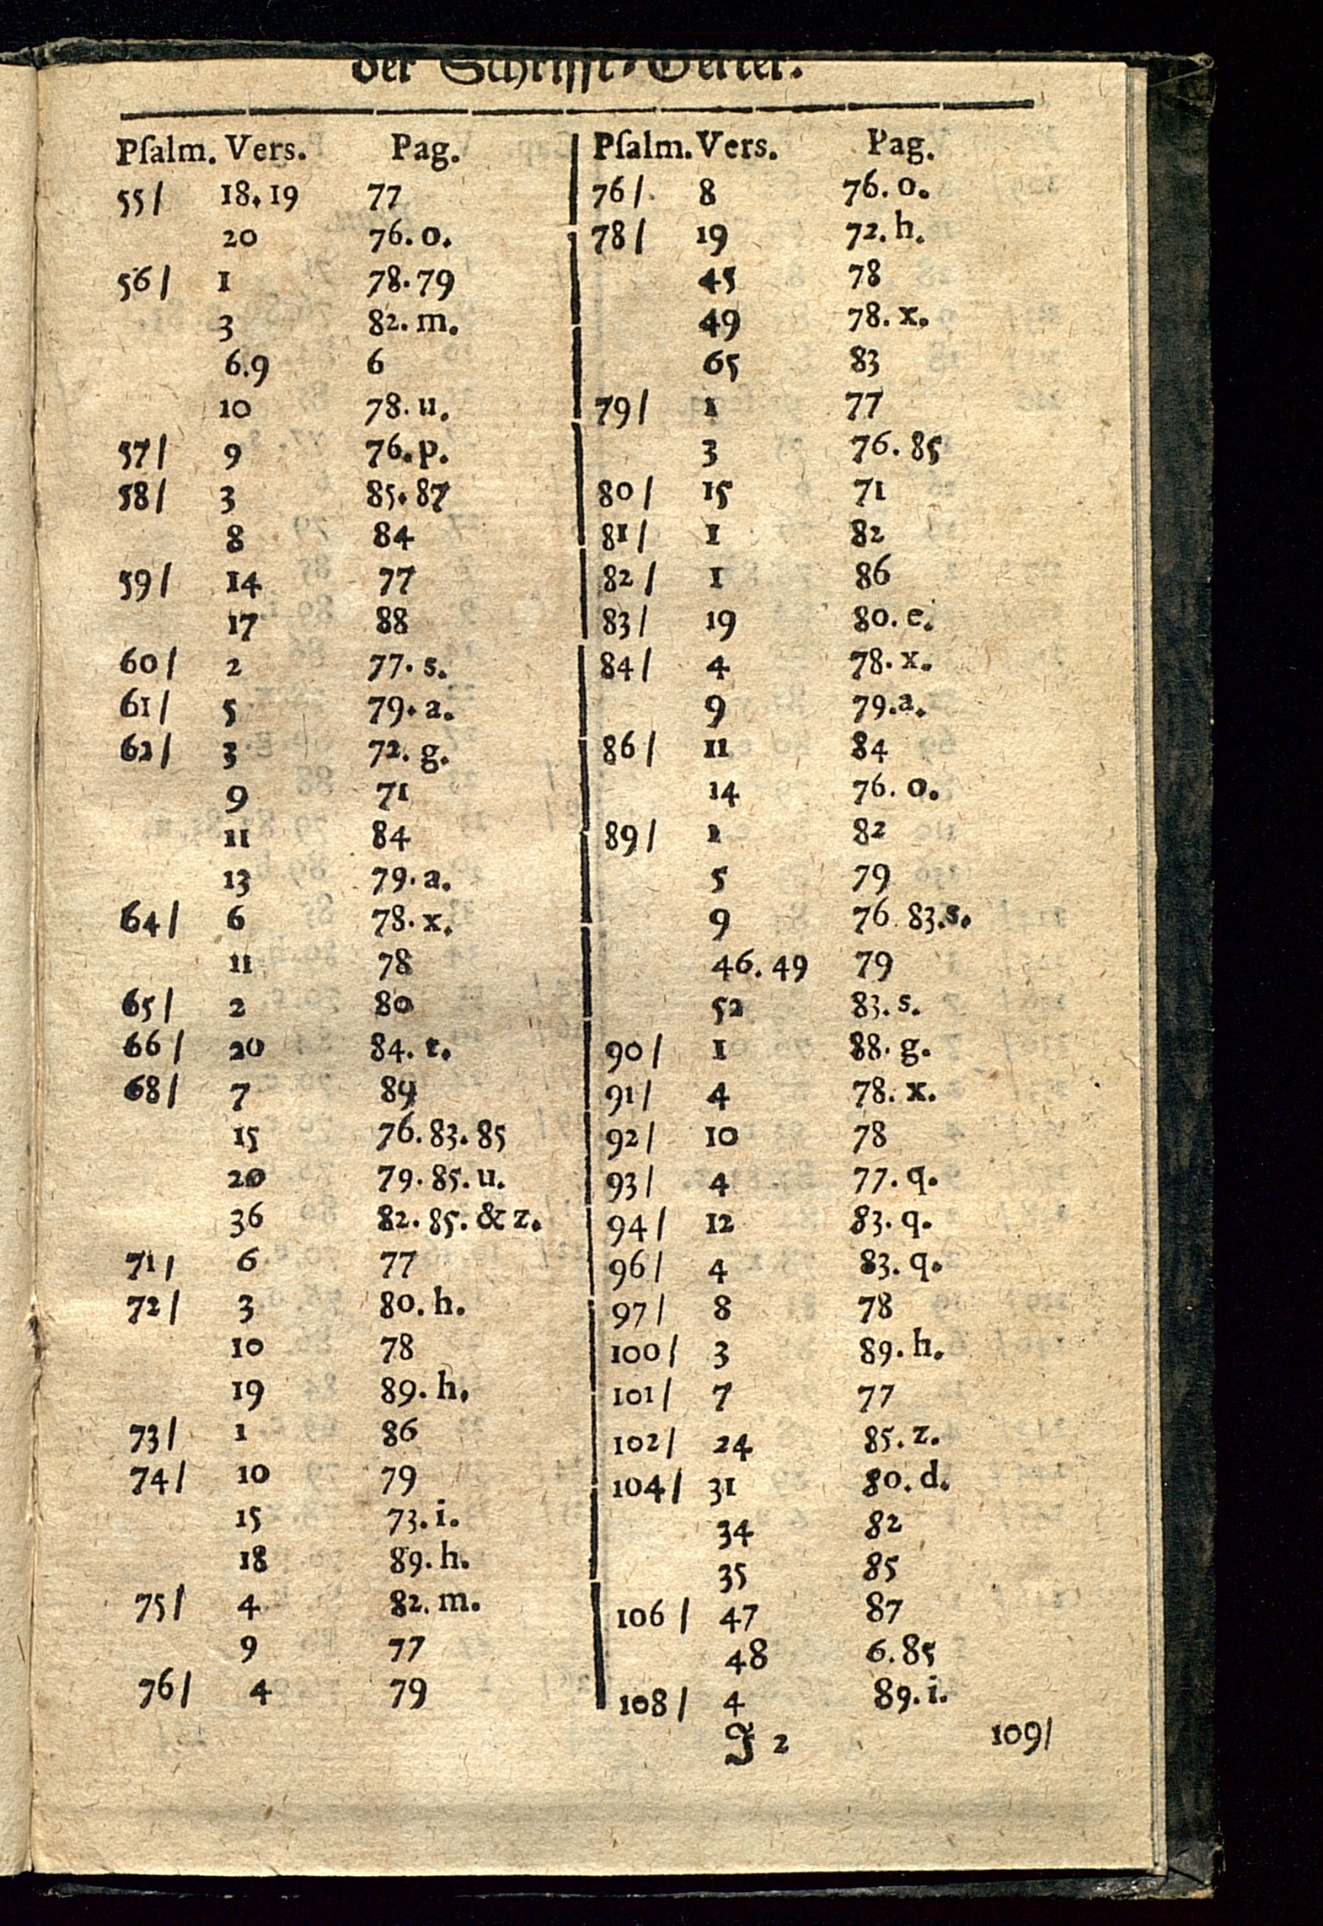 der Schrifft-Oerter.
Pſalm. Vers. Pag.
55/ 18. 19 77
20 76. o.
56/ 1 78. 79
3 82. m.
6. 9 6
10 78. u.
57/ 9 76. p.
58/ 3 85. 87
8 84
59/ 14 77
17 88
60/ 2 77. s.
61/ 5 79. a.
62/ 3 72. g.
9 71
11 84
13 79. a.
64/ 6 78. x.
11 78
65/ 2 80
66/ 20 84. t.
68/ 7 89
15 76. 83. 85
20 79. 85. u.
36 82. 85. & z.
71/ 6 77
72/ 3 80. h.
10 78
19 89. h.
73/ 1 86
74/ 10 79
15 73. i.
18 89. h.
75/ 4 82. m.
9 77
76/ 4 79
Pſalm. Vers. Pag.
76/ 8 76. o.
78/ 19 72. h.
45 78
49 78. x.
65 83
79/ 1 77
3 76. 85
80/ 15 71
81/ 1 82
82/ 1 86
83/ 19 80. e.
84/ 4 78. x.
9 79. a.
86/ 11 84
14 76. o.
89/ 1 82
5 79
9 76 83. s.
46. 49 79
52 83. s.
90/ 1 88. g.
91/ 4 78. x.
92/ 10 78
93/ 4 77. q.
94/ 12 83. q.
96/ 4 83. q.
97/ 8 78
100/ 3 89. h.
101/ 7 77
102/ 24 85. z.
104/ 31 80. d.
34 82
35 85
106/ 47 87
48 6. 85
108/ 4 89. i.
J 2 109/